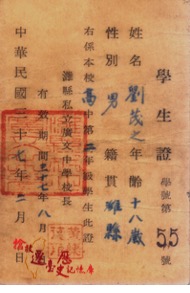 學生證
學號第55號
姓名 劉茂之 年齡 十八歲
性別 男 籍貫 濰縣
右係本校高中第二年級學生此證
濰縣私立廣文中學校長
有效期間三十七年八月
中華民國三十七年二月 日